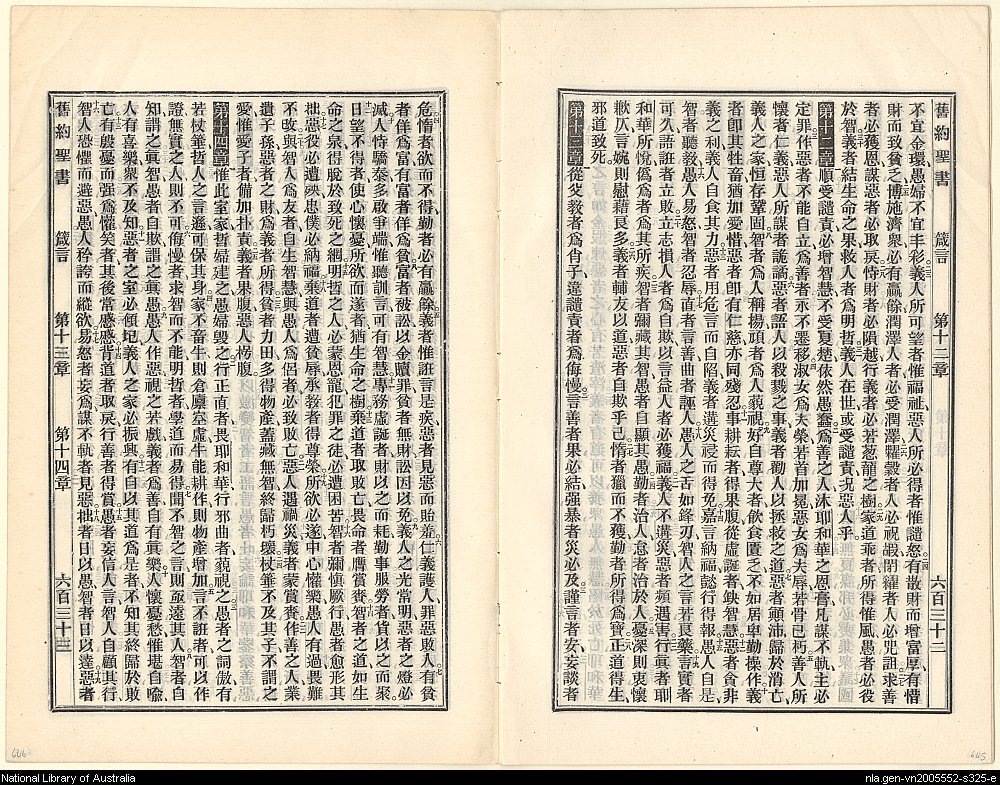 舊約聖書 箴言 第十二章 六百三十二
不宜金環愚婦不宜丰彩義人所可望者惟福祉惡人所必得者惟譴怒有散財而增富厚有惜
財而致貧乏博施濟衆必有贏餘潤澤人者必受潤澤糴穀者人必祝嘏閉糶者人必咒詛求善
者必獲恩謀惡者必取戾恃財者必隕越行義者必若葱蘢之樹家道乖者所得惟風愚者必役
於智義者結生命之果救人者爲明哲義人在世或受譴責況惡人乎
第十二章順受譴責必增智慧不受夏楚依然愚蠢爲善之人沐耶和華之恩膏凡謀不軌主必
定罪作惡者不能自立爲善者永不遷移淑女爲夫榮若首加冕惡女爲夫辱若骨已朽善人所
懷者仁義惡人所謀者詭譎惡者語人以殺戮之事義者勸人以拯救之道惡者顛沛歸於消亡
義人之家恒存鞏固智者爲人稱揚頑者爲人藐視好自尊大者飲食匱乏不如居卑勤操作義
者卽其牲畜猶加愛惜惡者卽有仁慈亦同殘忍事耕耘者得果腹從虛誕者缺智慧惡者貪非
義之利義人自食其力惡者用危言而自陷義者遘災祲而得免嘉言納福懿行得報愚人自是
智者聽敎愚人易怒智者忍辱直者言善曲者誣人愚人之舌如鋒刃智人之言若良藥言實者
可久語誑者立敗立志損人者爲自欺以言益人者必獲福義人不遘災惡者頻遇害行眞者耶
和華所悅僞爲者爲其所疾智者彌藏其智愚者自顯其愚勤者治人怠者治於人憂深則衷懷
歉仄言婉則慰藉良多義者輔友以道惡者自欺乎己惰者獵而不獲勤者所得爲寶正道得生
邪道致死
第十三章從父敎者爲肖子違譴責者爲侮慢言善者果必結强暴者災必及謹言者安妄談者
危惰者欲而不得勤者必有贏餘義者惟誑言是疾惡者見惡而貽羞仁義護人罪惡敗人有貧
者佯爲富有富者佯爲貧富者被訟以金贖罪貧者無財訟因以免義人之光常明惡者之燈必
滅人恃驕泰多啟爭端惟聽訓言可有智慧專務虛誕者財以之而耗勤事服勞者貨以之而聚
日望不得者使心懷憂所欲而遂者猶生命之樹棄道者取敗亡畏命者膺賞賚智者之道如生
命之泉得脫於致死之網明哲之人必蒙恩寵犯罪之徒必遭困苦智者彌愼厥行愚者愈形其
拙惡役必遭殃忠僕必納福棄道者遭貧辱承敎者得尊榮所欲必遂中心懽樂愚人有過畏難
不改與智人爲友者自生智慧與愚人爲侶者必致敗亡惡人遇禍災義者蒙賞賚作善之人業
遺子孫惡者之財爲義者所得貧者力田多得物產蓋藏無智終歸朽壞杖箠不及其子不謂之
愛惟愛子者備加扑責義者果腹惡人枵腹
第十四章惟此室家哲婦建之愚婦毁之行正直者畏耶和華行邪曲者藐視之愚者之詞傲有
若杖箠哲人之言遜可保其身家不畜牛則倉廩空虛牛能耕作則物產增加言不誑者可以作
證無實之人則不可侮慢者求智而不能明哲者學道而易得聞不智之言則亟遠其人智者自
知謂之眞智愚者自欺謂之眞愚愚人作惡視之若戲義者爲善自有眞樂人懷憂愁惟堪自喩
人有喜樂衆不及知惡者之室必傾圮義人之家必振興有自以其道爲是者不知其終歸於敗
亡有般憂而强爲懽笑者其後常慼慼背道者取戾行善者得賞愚者妄信人言智人自顧其行
智人恐懼而避惡愚人矜誇而縱欲易怒者妄爲謀不軌者見惡拙者日以愚智者日以達惡者
舊約聖書 箴言 第十三章 第十四章 六百三十三
646
645
National Library of Australia
nla.gen-vn2005552-s325-e